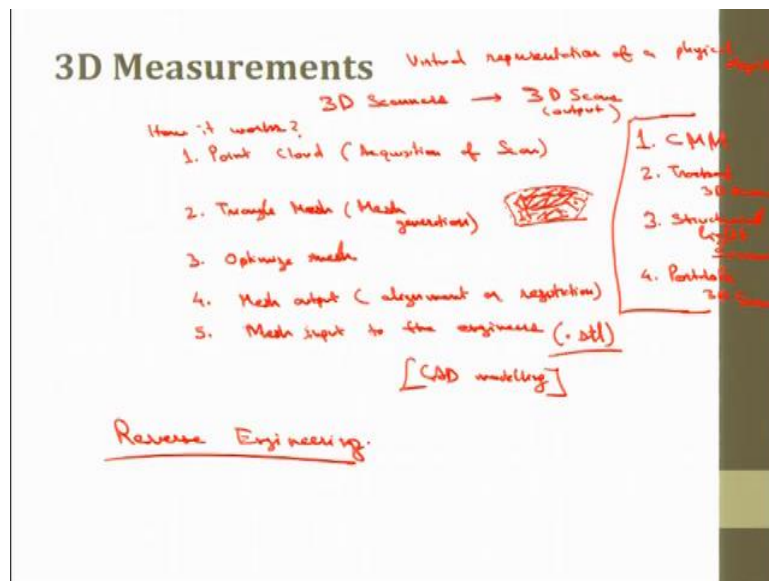 3D Measurements
Virtual representation of a physical
3D Scanners → 3D Scans
(output)
How it works?
1. Point Cloud (Acquisition of Scan)
2. Triangle Mesh (Mesh
generation)
3. Optimize mesh
4. Mesh output (alignment or registration)
5. Mesh input to the engineers (.stl)
[CAD modelling]
Reverse Engineering.
1. CMM
2.
3D
3. Structured
light
4. Portable
3D